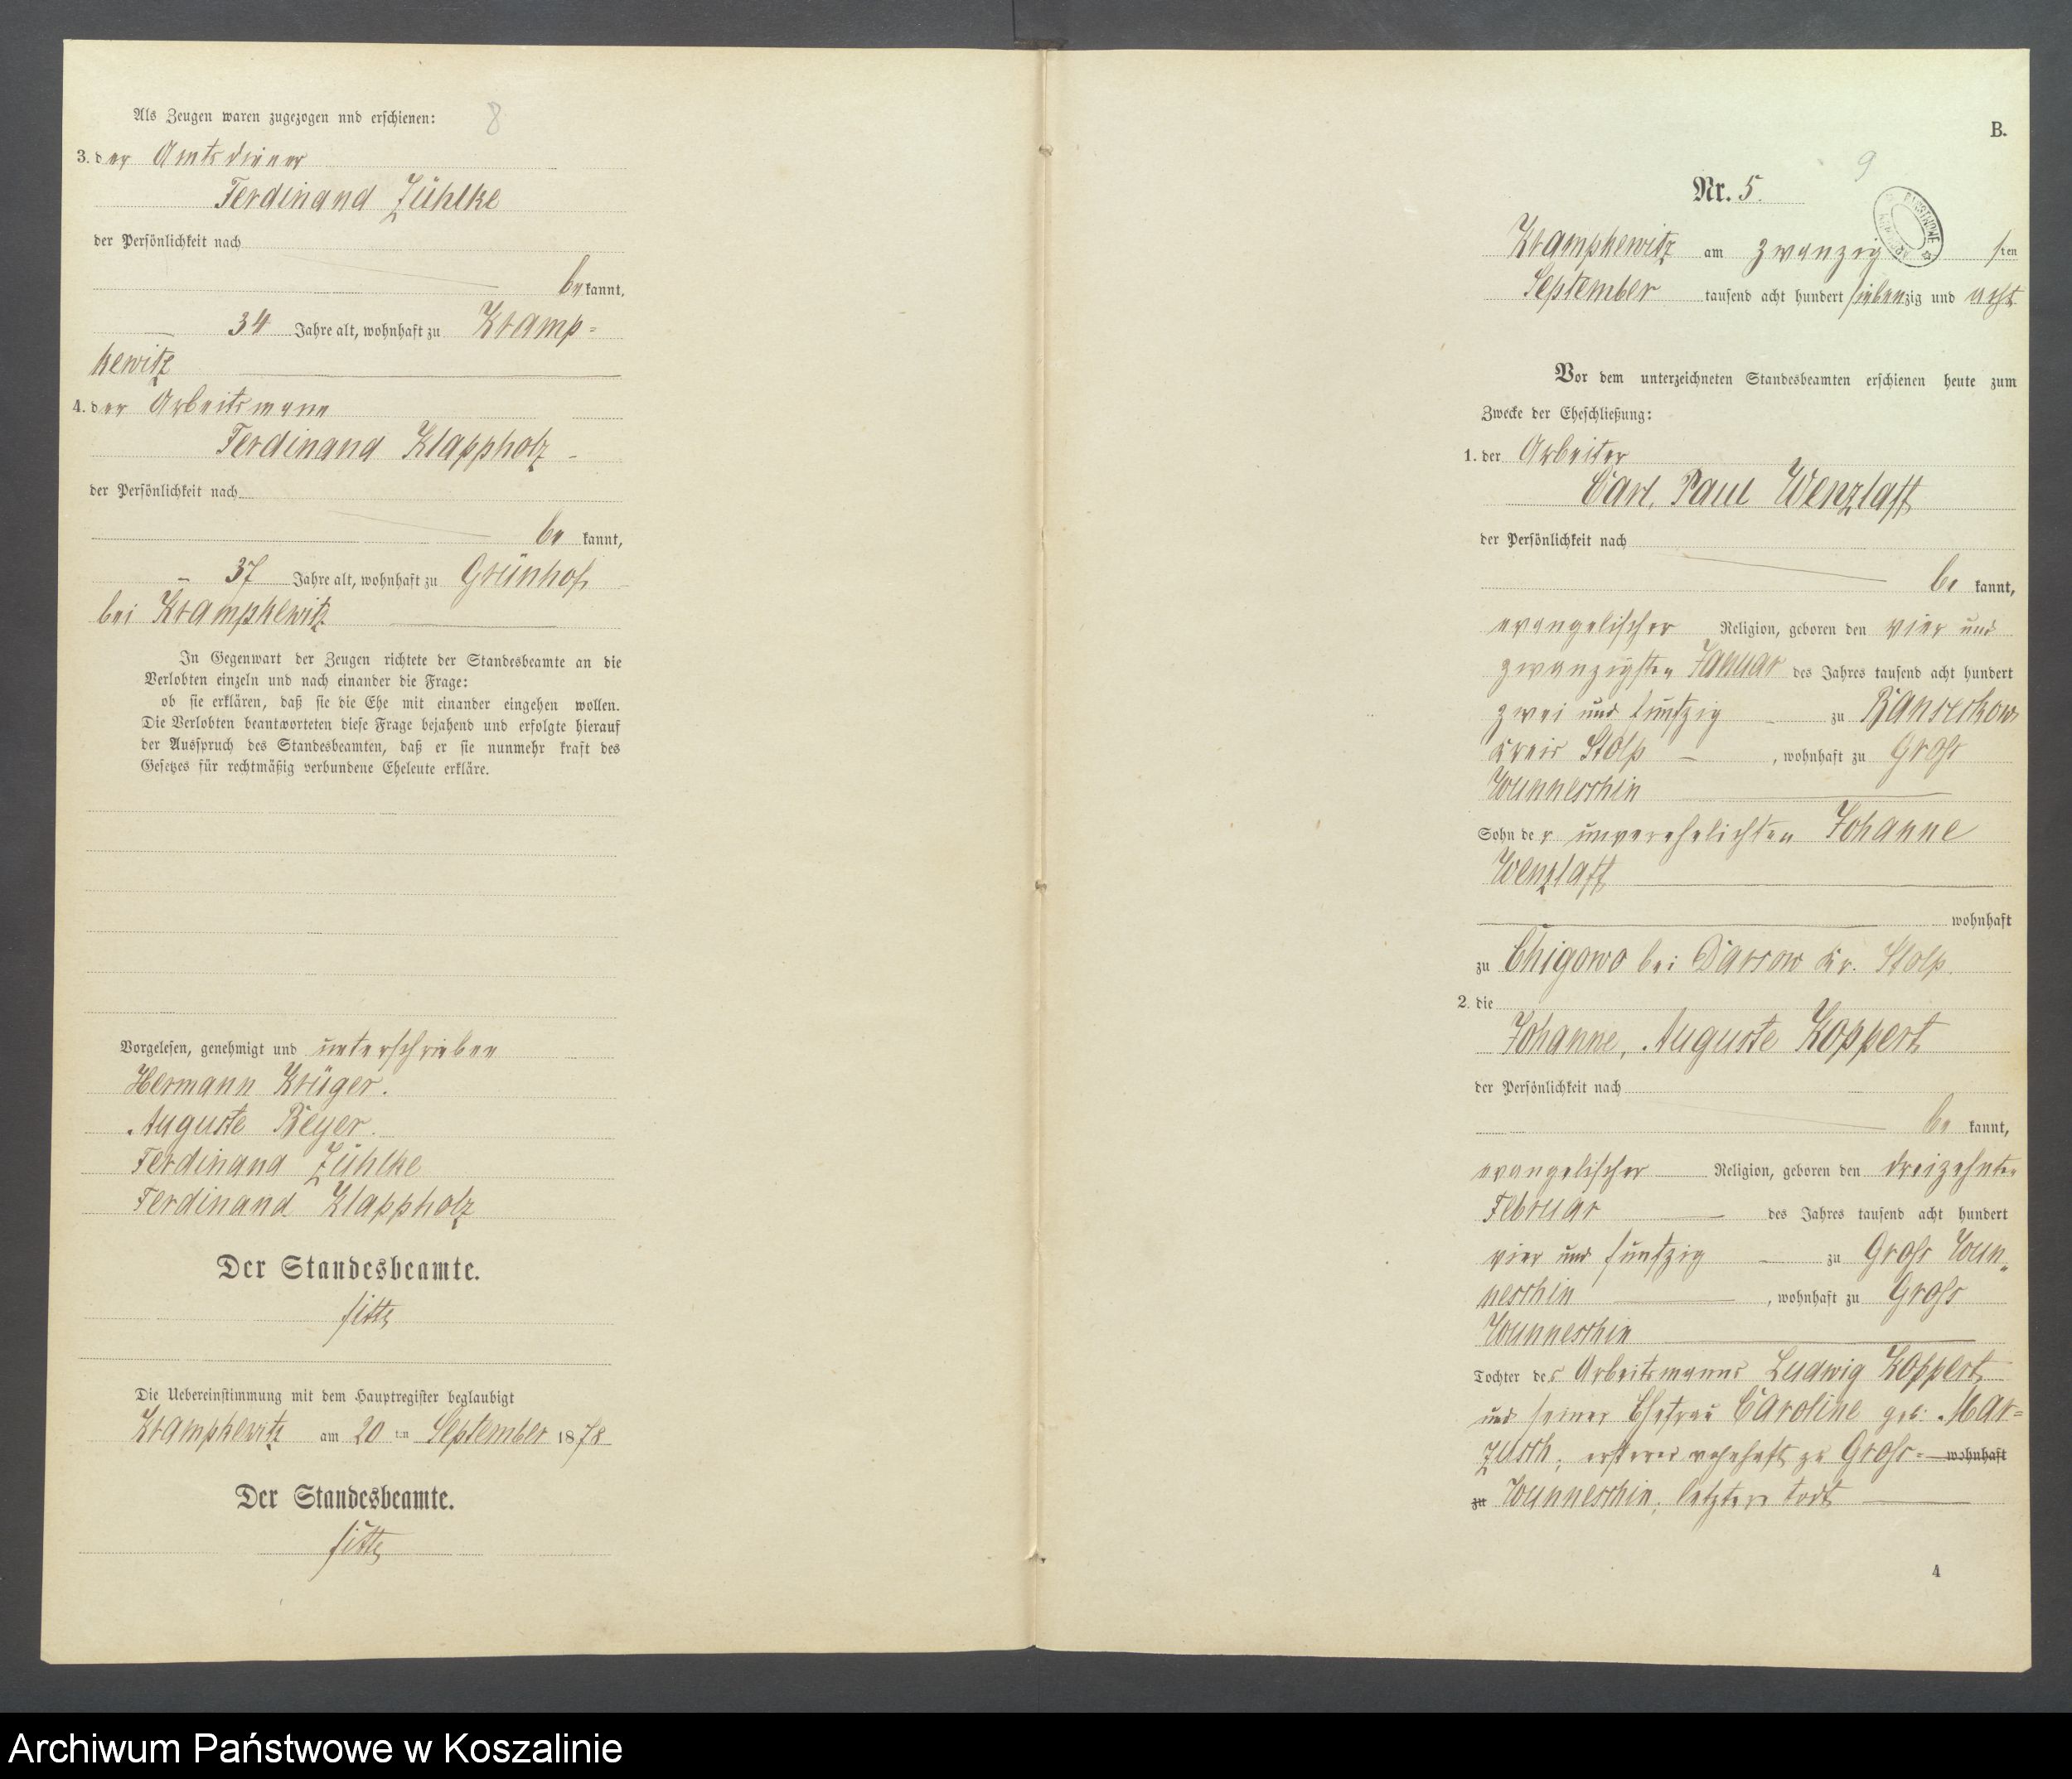 Als Zeugen waren zugezogen und erschienen:
8
3. der Amtsdiener
Ferdinand Zühlke
der Persönlichkeit nach
bekannt,
34 Jahre alt, wohnhaft zu Kramp=
kewitz
4. der Arbeitsmann
Ferdinand Klappholz
der Persönlichkeit nach
be kannt,
37 Jahre alt, wohnhaft zu Grünhof
bei Krampkewitz
In Gegenwart der Zeugen richtete der Standesbeamte an die
Verlobten einzeln und nach einander die Frage:
ob sie erklären, daß sie die Ehe mit einander eingehen wollen.
Die Verlobten beantworteten diese Frage bejahend und erfolgte hierauf
der Ausspruch des Standesbeamten, daß er sie nunmehr kraft des
Gesetzes für rechtmäßig verbundene Eheleute erkläre.
Vorgelesen, genehmigt und unterschrieben
Hermann Krüger.
Auguste Beyer.
Ferdinand Zühlke
Ferdinand Klappholz
Der Standesbeamte.
Die Uebereinstimmung mit dem Hauptregister beglaubigt
Krampkewitz am 20 ten September 1878
Der Standesbeamte.
B.
9
Nr. 5.
Krampkewitz am zwanzig sten
September tausend acht hundert siebenzig und acht
Vor dem unterzeichneten Standesbeamten erschienen heute zum
Zwecke der Eheschließung:
1. der Arbeiter
Carl, Paul Wenzlaff
der Persönlichkeit nach
be kannt,
evangelischer Religion, geboren den vier und
zwanzigsten Januar des Jahres tausend acht hundert
zwei und fünfzig zu Bansekow
Kreis Stolp, wohnhaft zu Groß
Wunneschin
Sohn der unverehelichten Johanne
Wenzlaff
wohnhaft
zu Chigowo bei Darsow Kr. Stolp.
2. die
Johanne, Auguste Koppert
der Persönlichkeit nach
be kannt,
evangelischer Religion, geboren den dreizehnten
Februar des Jahres tausend acht hundert
vier und fünfzig zu Groß Wun„
neschin, wohnhaft zu Groß
Wunneschin
Tochter des Arbeitsmanns Ludwig Koppert
und seiner Ehefrau Caroline geb. Mar=
zusch, ersterer wohnhaft zu Groß= wohnhaft
zu Wunneschin, letztere todt
4
Archiwum Państwowe w Koszalinie